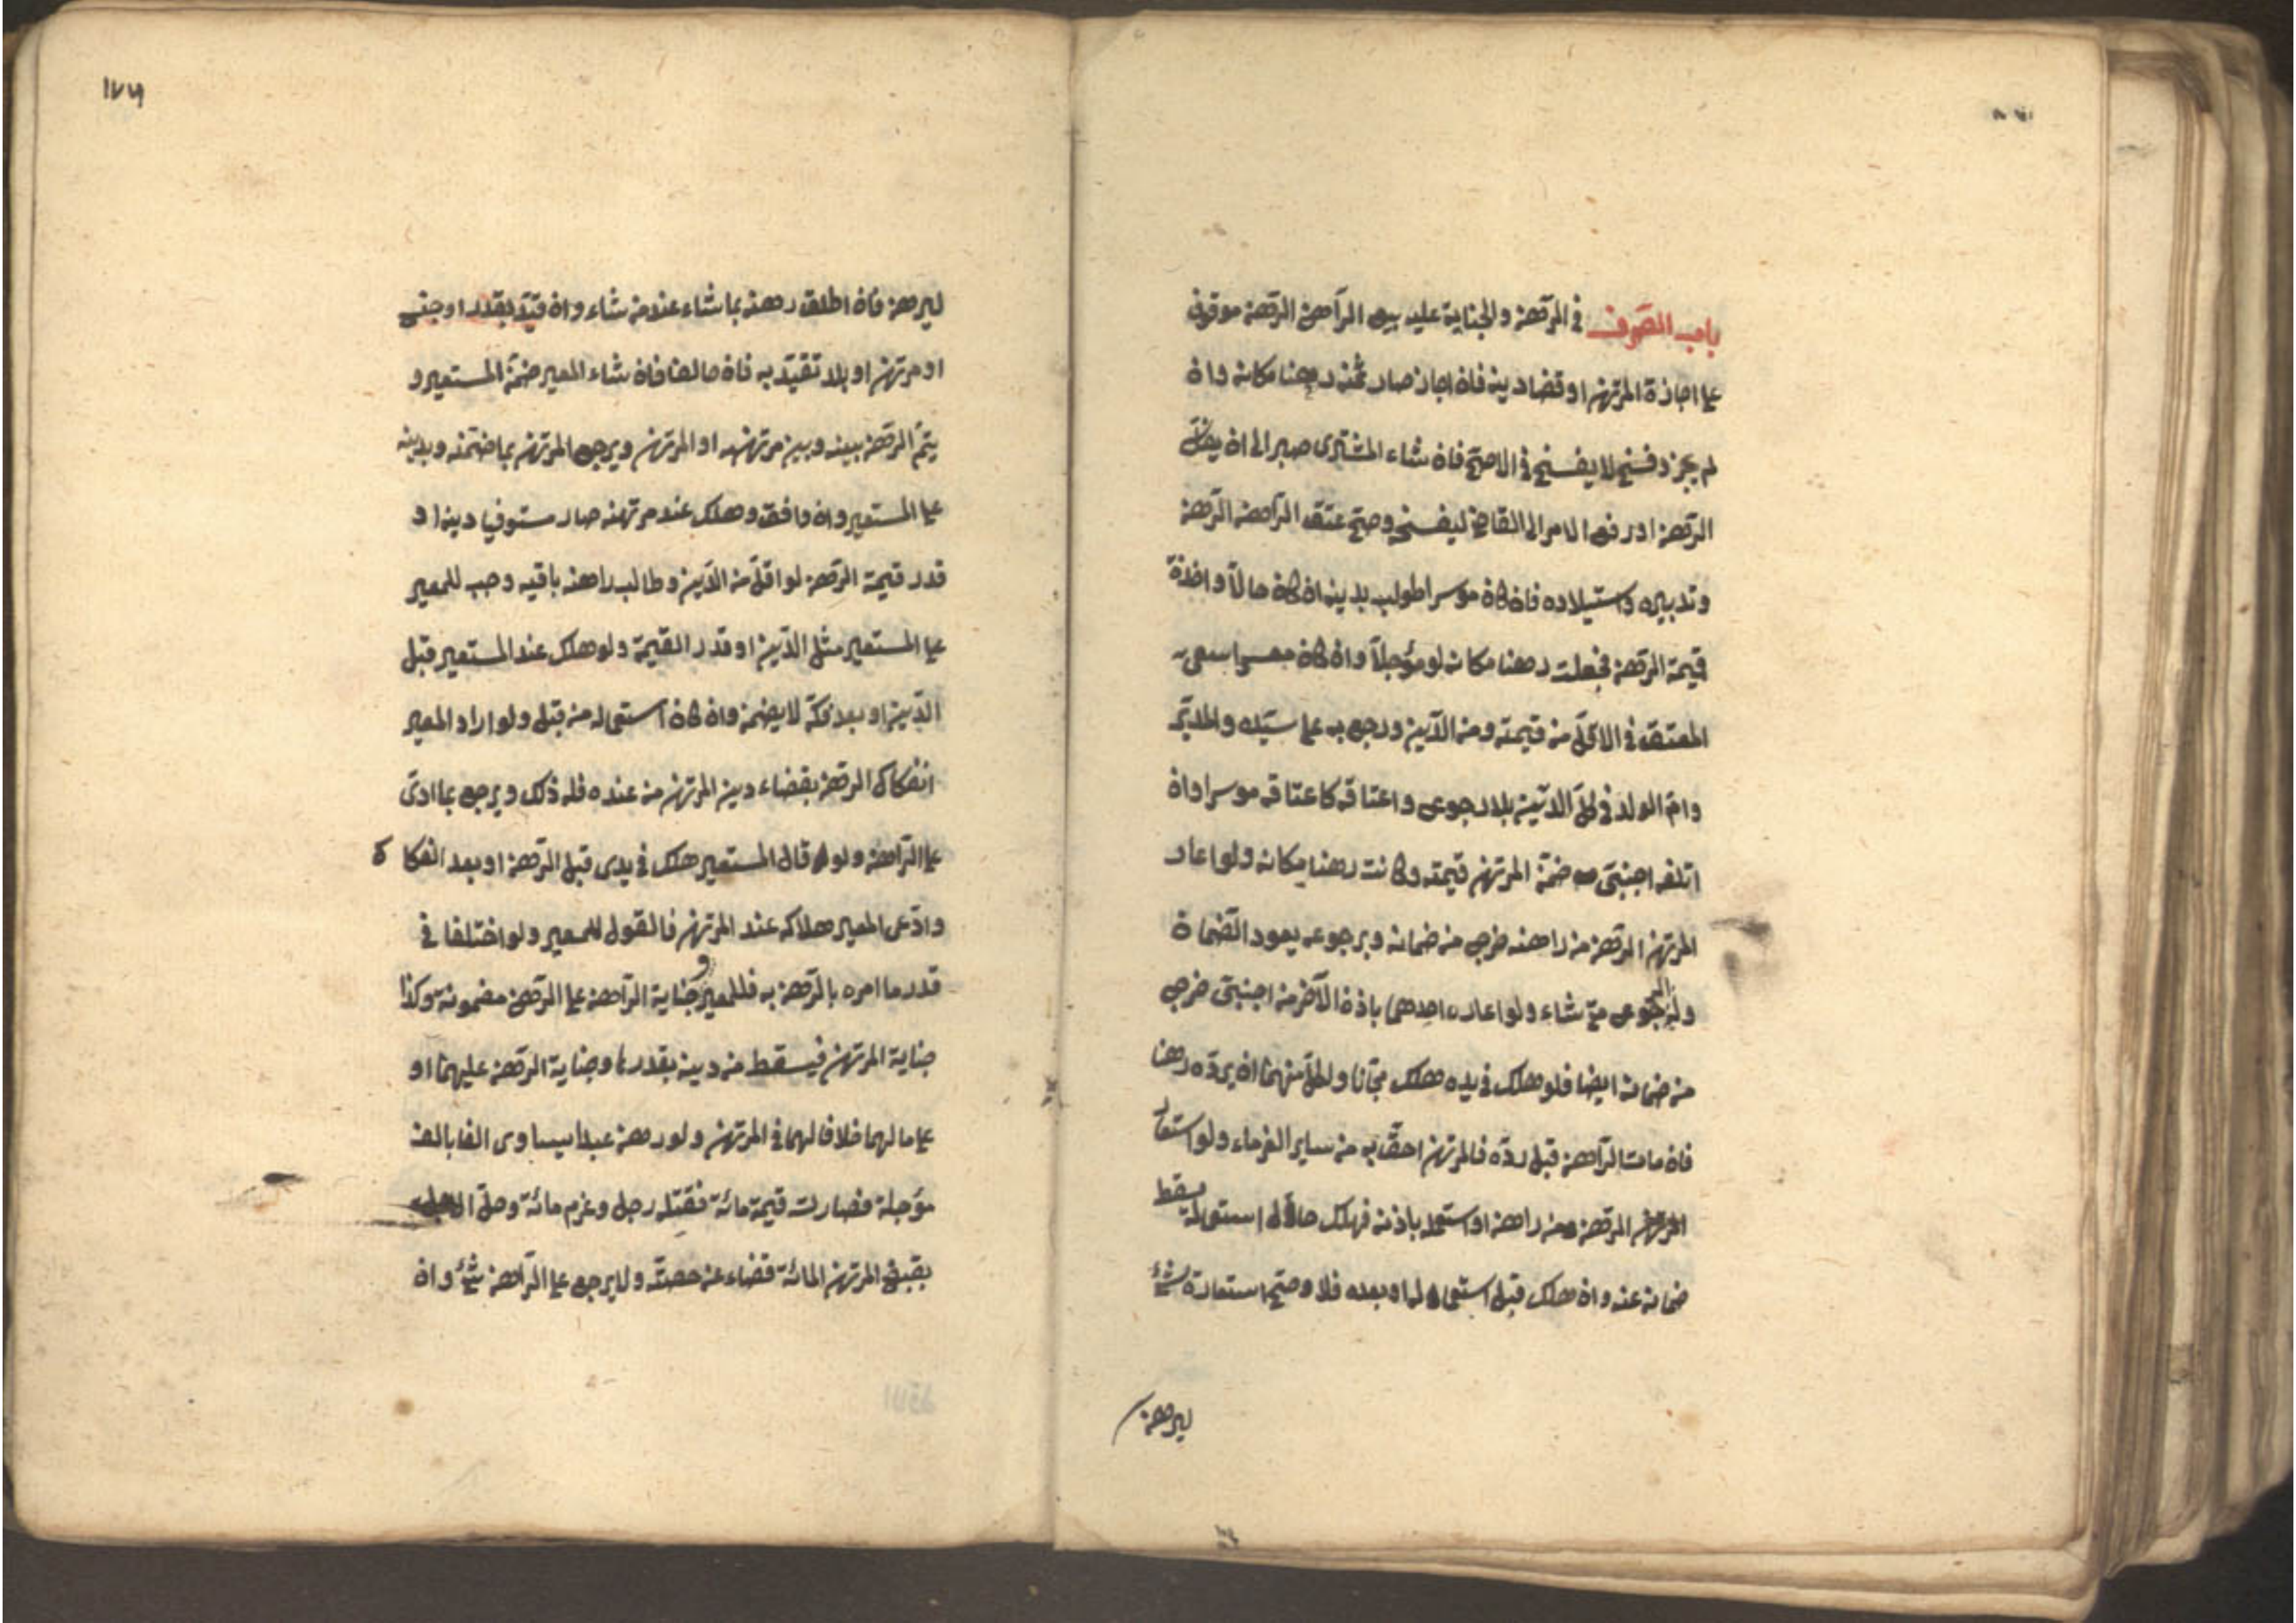 باب التصرف في الرّهن والجناية عليه بيع الرّاهن الرّهن موقوف
على اجازة المرتهن او قضا دينه فان اجاز صار ثمنه رهنا مكانه وان
لم يجز وفسخ لا يفسخ في الاصحّ فان شاء المشترى صبر الى ان يفكّ
الرّهن او رفع الامر الى القاضي ليفسخ وصحّ عتق الرّاهن الرّهن
وتدبيره واستيلاده فان كان موسرا طولب بدينه ان كان حالاّ واخذت
قيمة الرّهن فجعلت رهنا مكانه لو مؤجلاّ وان كان معسرا سعى
المعتق في الاقلّ من قيمته ومن الدّين ورجع به على سيّده والمدبّر
وامّ الولد في كلّ الدّين بلا رجوع واعتاقه كاعتاقه موسرا وان
اتلفه اجنبيّ ضمّن المرتهن قيمته وكانت رهنا مكانه ولو اعار
المرتهن الرّهن من راهنه خرج من ضمانه وبرجوعه يعود الضّمان
وله الرّجوع متى شاء ولو اعاره احدهما باذن الآخر من اجنبيّ خرج
من ضمانه ايضا فلو هلك في يده هلك مجّانا ولكلّ منهما ان يردّه رهنا
فان مات الرّاهن قبل ردّه فالمرتهن احقّ به من ساير الغرماء ولو استعار
المرتهن الرّهن من راهنه او استعمله باذنه فهلك حال استعماله سقط
ضمانه عنه وان هلك قبل استعماله او بعده فلا وصحّ استعارة شئ
ليرهن
١٧٦
ليرهن فان اطلق رهنه بما شاء عند من شاء وان قيّد بقدر او جنس
او مرتهن او بلد تقيّد به فان خالف فان شاء المعير ضمّن المستعير و
يتمّ الرّهن بينه وبين مرتهنه او المرتهن ويرجع المرتهن بما ضمّنه وبدينه
على المستعير وان وافق وهلك عند مرتهنه صار مستوفيا دينه او
قدر قيمة الرّهن لو اقلّ من الدّين وطالب راهنه باقيه وجب للمعير
على المستعير مثل الدّين او قدر القيمة ولو هلك عند المستعير قبل
الدّين او بعد فكّه لا يضمن وان كان استعمله من قبل ولو اراد المعير
انفكاك الرّهن بقضاء دين المرتهن من عنده فله ذلك ويرجع بما ادّى
على الرّاهن ولو قال المستعير هلك في يدى قبل الرّهن او بعد الفكاك
وادّعى المعير هلاكه عند المرتهن فالقول للمعير ولو اختلفا في
قدر ما امره بالرّهن به فللمعير وجناية الرّاهن على الرّهن مضمونة وكذا
جناية المرتهن فيسقط من دينه بقدرها وجناية الرّهن عليهما او
على مالهما خلافا لهما في المرتهن ولو رهن عبدا يساوى الفا بالف
مؤجلة فصارت قيمة مائة فقتله رجل وغرم مائة وحلّ الاجل
يقبض المرتهن المائة قضاء عن حصته ولا يرجع على الرّاهن بشئ وان